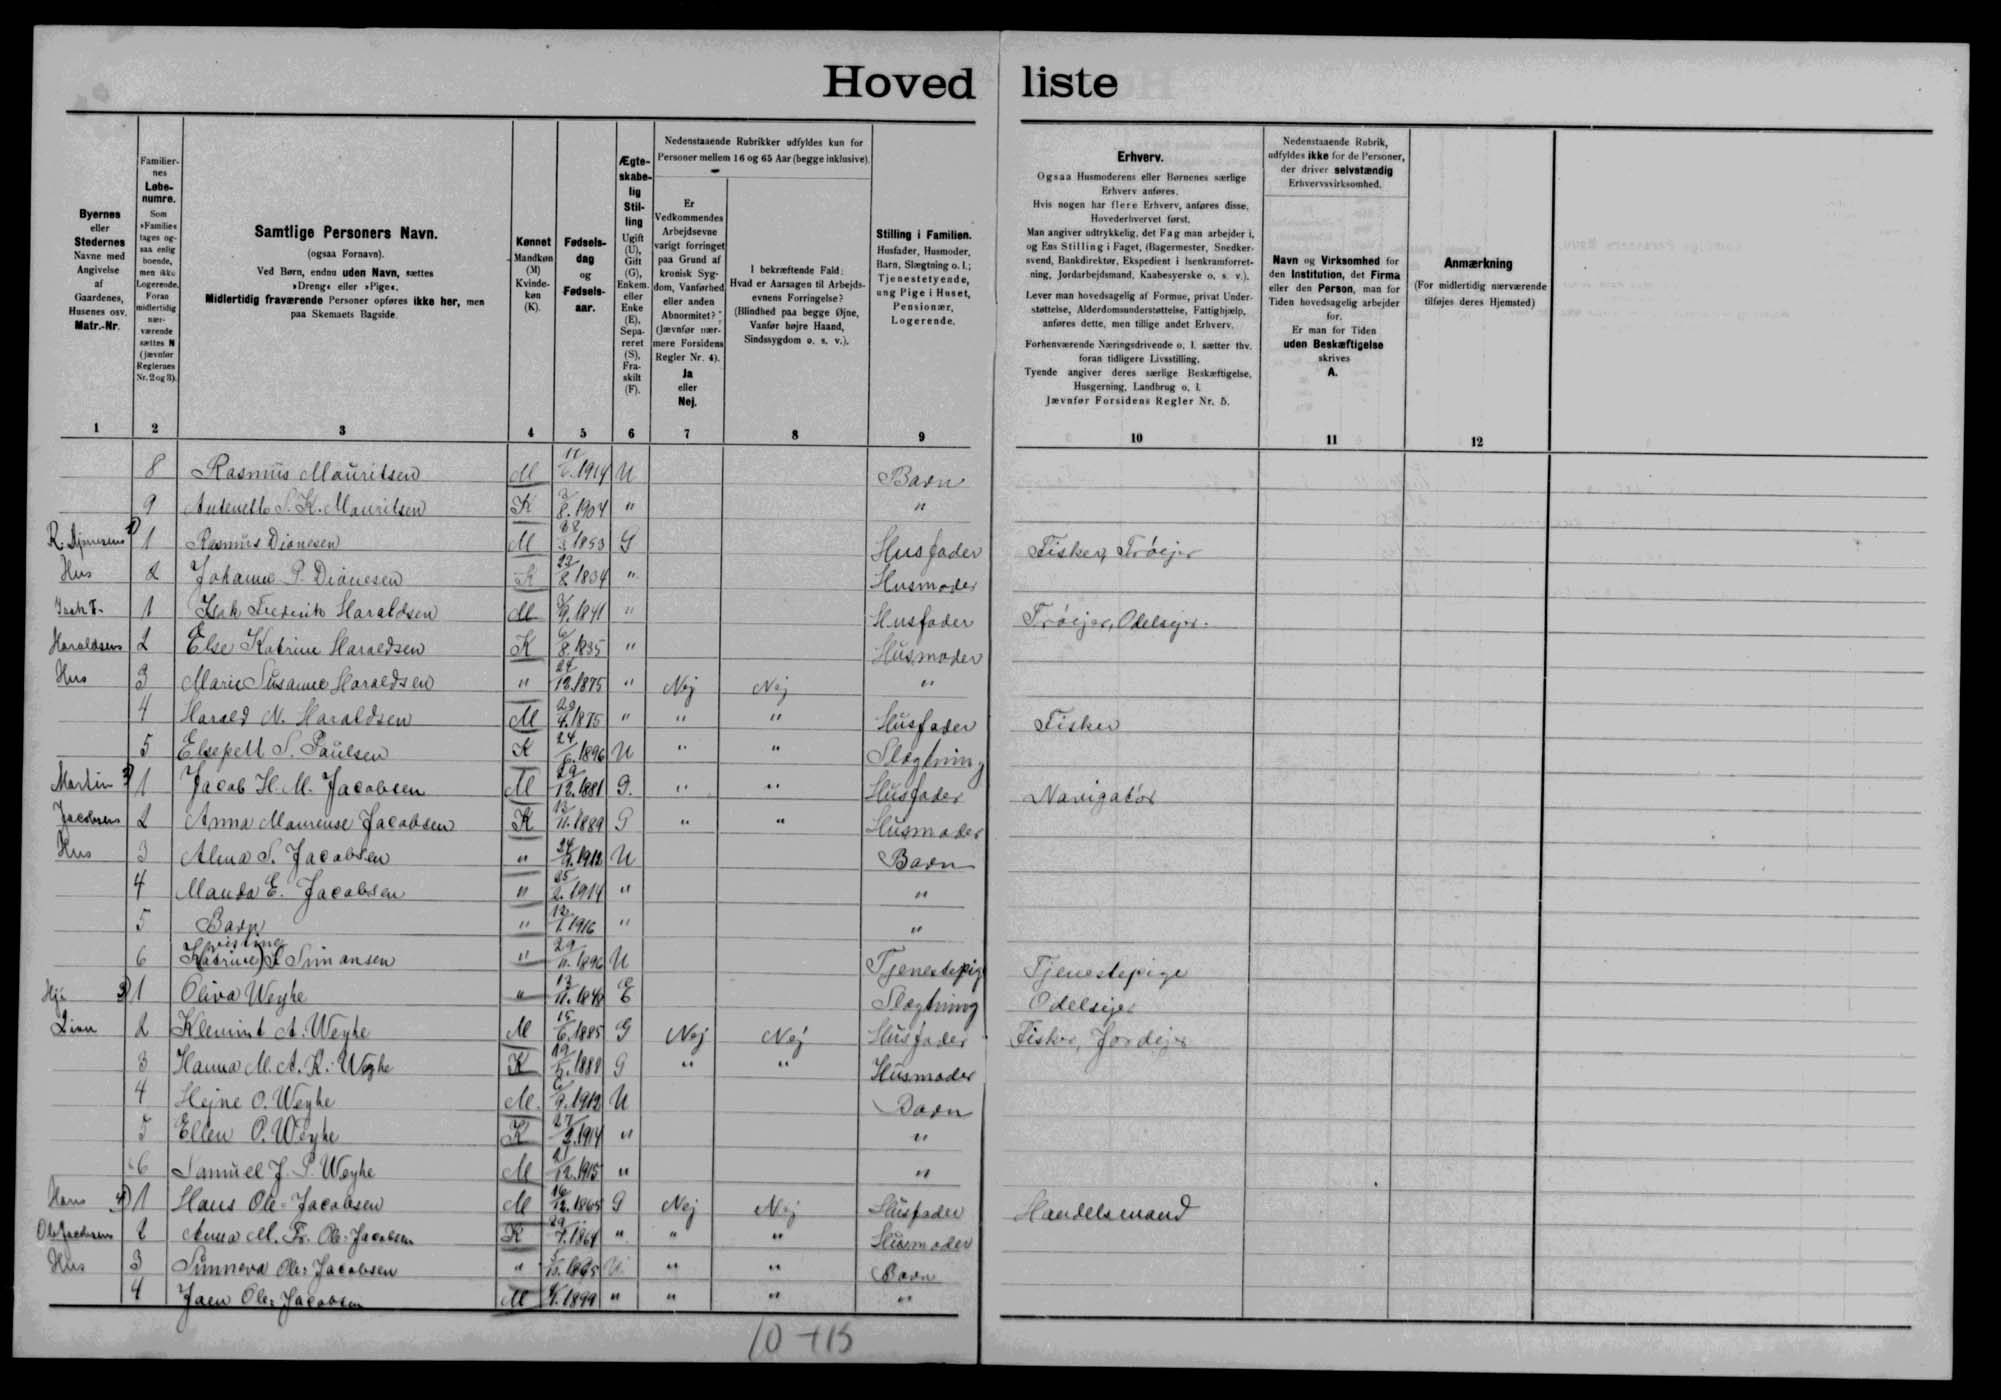 Hoved liste
Byernes
eller
Stedernes
Navne med
Angivelse
af
Gaardenes,
Husenes osv.
Matr.-Nr.
Familier-
nes
Løbe-
numre.
Som
»Familie«
tages og-
saa enlig
boende,
men ikke
Logerende.
Foran
midlertidig
nær-
værende
sættes N
(jævnfør
Reglernes
Nr. 2 og 3).
Samtlige Personers Navn.
(ogsaa Fornavn).
Ved Børn, endnu uden Navn, sættes
»Dreng« eller »Pige«.
Midlertidig fraværende Personer opføres ikke her, men
paa Skemaets Bagside.
Kønnet
Mandkøn
(M)
Kvinde-
køn
(K).
Fødsels-
dag
og
Fødsels-
aar.
Ægte-
skabe-
lig
Stil-
ling
Ugift
(U),
Gift
(G),
Enkem.
eller
Enke
(E),
Sepa-
reret
(S),
Fra-
skilt
(F).
Nedenstaaende Rubrikker udfyldes kun for
Personer mellem 16 og 65 Aar (begge inklusive).
Er
Vedkommendes
Arbejdsevne
varigt forringet
paa Grund af
kronisk Syg-
dom, Vanførhed
eller anden
Abnormitet?
(Jævnfør nær-
mere Forsidens
Regler Nr. 4).
Ja
eller
Nej.
I bekræftende Fald:
Hvad er Aarsagen til Arbejds-
evnens Forringelse?
(Blindhed paa begge Øjne,
Vanfør højre Haand,
Sindssygdom o. s. v.).
Stilling i Familien.
Husfader, Husmoder,
Barn, Slægtning o. l.;
Tjenestetyende,
ung Pige i Huset,
Pensionær,
Logerende.
Erhverv.
Ogsaa Husmoderens eller Børnenes særlige
Erhverv anføres.
Hvis nogen har flere Erhverv, anføres disse,
Hovederhvervet først.
Man angiver udtrykkelig, det Fag man arbejder i,
og Ens Stilling i Faget, (Bagermester, Snedker-
svend, Bankdirektør, Ekspedient i Isenkramforret-
ning, Jordarbejdsmand, Kaabesyerske o. s. v.).
Lever man hovedsagelig af Formue, privat Under-
støttelse, Alderdomsunderstøttelse, Fattighjælp,
anføres dette, men tillige andet Erhverv.
Forhenværende Næringsdrivende o. l. sætter thv.
foran tidligere Livsstilling.
Tyende angiver deres særlige Beskæftigelse,
Husgerning, Landbrug o. l.
Jævnfør Forsidens Regler Nr. 5.
Nedenstaaende Rubrik,
udfyldes ikke for de Personer,
der driver selvstændig
Erhvervsvirksomhed.
Navn og Virksomhed for
den Institution, det Firma
eller den Person, man for
Tiden hovedsagelig arbejder
for.
Er man for Tiden
uden Beskæftigelse
skrives
A.
Anmærkning
(For midlertidig nærværende
tilføjes deres Hjemsted)
1 2 3 4 5 6 7 8 9 10 11 12
8 Rasmus Mauritsen M 1914 U Barn
9 S. K. Mauritsen K 8. 1904 " "
1 Rasmus Dionesen M 1853 G Husfader Fisker,
Hus 2 Johanne P. Dionesen K 8. 1834 " Husmoder
1 Isak Frederik Haraldsen M 9. 1841 " Husfader Odelsejer.
Haraldsens 2 Else Katrine Haraldsen K 6/8. 1835 " Husmoder
Hus 3 Marie Susanne Haraldsen " 24/12. 1875 " Nej Nej "
4 Harald N. Haraldsen M 1875 " " " Husfader Fisker
5 Elsepell S. Paulsen K 24 1896 U " " Slægtning
Martin 1 Jacob H. M. Jacobsen M 29/12. 1881 G. " " Husfader Navigatør
Jacobsens 2 Anna Maurense Jacobsen K 11. 1889 G " " Husmoder
Hus 3 Alma S. Jacobsen " 24 1912 U Barn
4 Manda E. Jacobsen " 25/2. 1914 " "
5 Barn " 1. 1916 " "
6 Katrine S. Simonsen " 29/11. 1896 U Tjenestepige Tjenestepige
3) 1 Oliva Weyhe " 13/11. 1840 E Slægtning Odelsejer
2 Klemint A. Weyhe M 15/6. 1885 G Nej Nej Husfader Fisker, Jordejer
3 Hanna M. A. K. Weyhe K 1888 G " " Husmoder
4 Hejne O. Weyhe M. 6/9. 1912 U Barn
5 Ellen P. Weyhe K 27/2. 1914 " "
6 Samuel J. P. Weyhe M 21/12. 1915 " "
Hans 4) 1 Hans Ole=Jacobsen M 16/12. 1865 G Nej Nej Husfader Handelsmand
Ole Jacobsens 2 Anna M. Fr. Ole=Jacobsen K 29/7. 1864 " " " Husmoder
Hus 3 Sunneva Ole=Jacobsen " 1895 U " " Barn
4 Ole=Jacobsen M 1899 " " " "
10 + 15